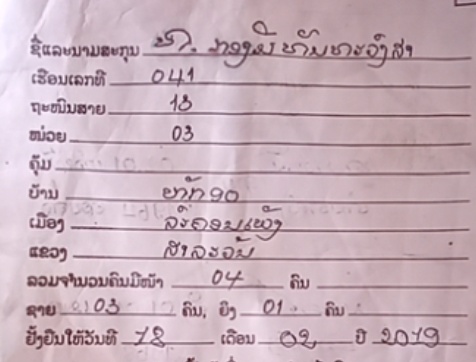 ຊື່ແລະນາມສະກຸນ ທ. ກອງມີ
ເຮືອນເລກທີ 041
ຖະໜົນສາຍ 13
ໜ່ວຍ 03
ຄຸ້ມ
ບ້ານ ຍາກ໑໐
ເມືອງ ລະຄອນເພັງ
ແຂວງ ສາລະວັນ
ລວມຈຳນວນຄົນມີໜ້າ 04 ຄົນ
ຊາຍ 03 ຄົນ, ຍິງ 01 ຄົນ
ຢັ້ງຢືນໃຫ້ວັນທີ 12 ເດືອນ 02 ປີ 2019